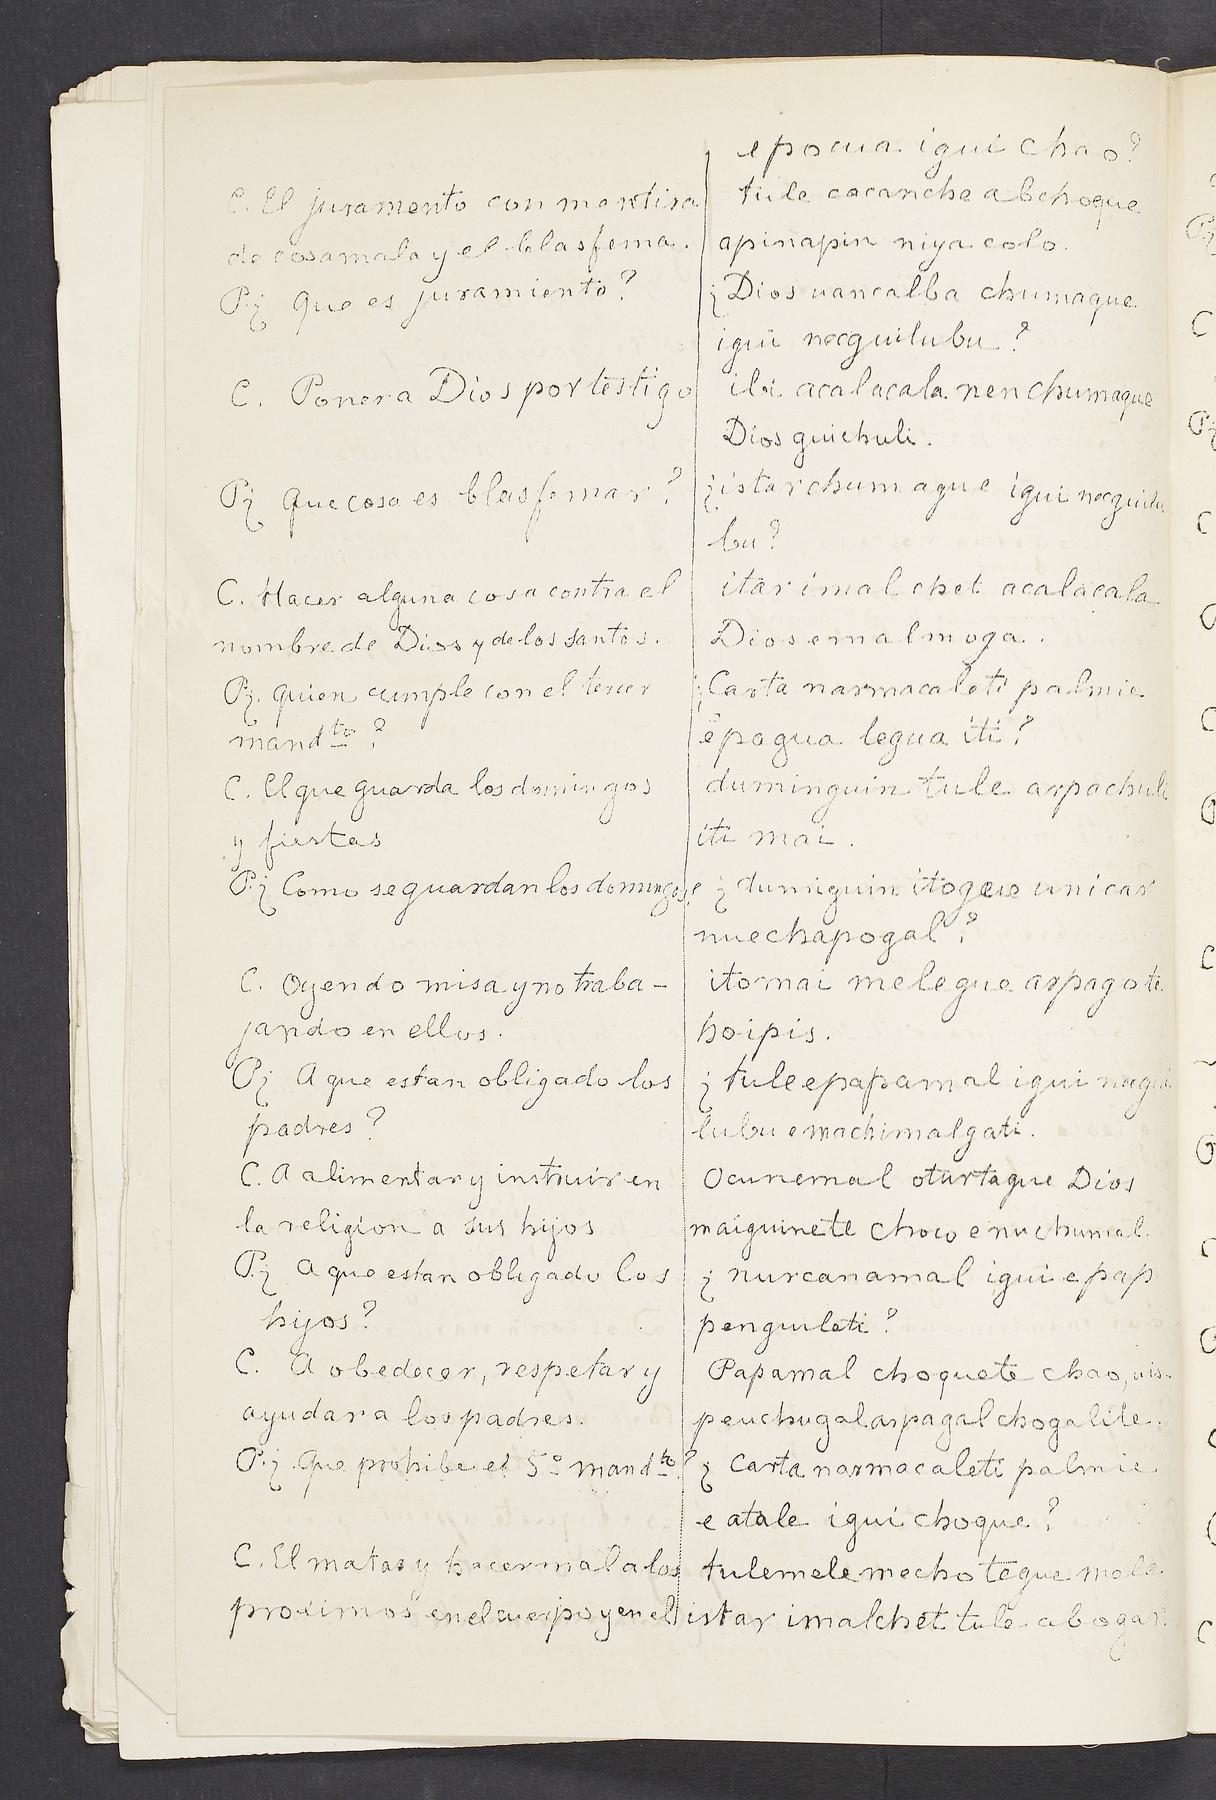 epocua igui chao?
C. El juramento con mentira
de cosa mala y el blasfema.
P.¿ Que es juramiento?
C. Poner a Dios por testigo
P¿ Que cosa es blasfemar?
C. Hacer alguna cosa contra el
nombre de Dios y de los Santos.
P¿. quien cumple con el tercer
mandto?
C. El que guarda los domingos
y fiestas
P.¿ Como se guardan los domingos?
C. Oyendo misa y no traba-
jando en ellos.
P¿ A que estan obligado los
padres?
C. A alimentar y instruir en
la religion a sus hijos
P.¿ A que estan obligado los
hijos?
C. A obedecer, respetar y
ayudar a los padres.
P.¿ Que prohibe el 5º mandto?
C. El matar y hacer mal a los
proximos en el cuerpo y en el
tule cacanche abchoque
apinapin niya colo.
¿Dios uancalba chumaque
igui necguilubu?
ibi acalacala nen chumaque
Dios guichuli.
¿istar chumague igui necguilu
bu?
itar imal chet acalacala
Dios emalmoga.
¿Carta narmacaleti palmie
epagua legua iti?
duminguin tule arpachuli
iti mai.
¿ dumiguin itogeue unicar
nuechapogal?
itomai melegue arpagoti
hoipis.
¿ tule epapamal igui
lubu emachimalgati.
Ocunemal oturtaque Dios
maiguinete choco enuchumal.
¿ nurcanamal igui epap
penguileti?
Papamal choquete chao, uis-
peuchugal arpagal chogalile.
¿ Carta narmacaleti palmie
e atale igui choque?
tulemele mechotegue mele
istar imalchet tule abogan